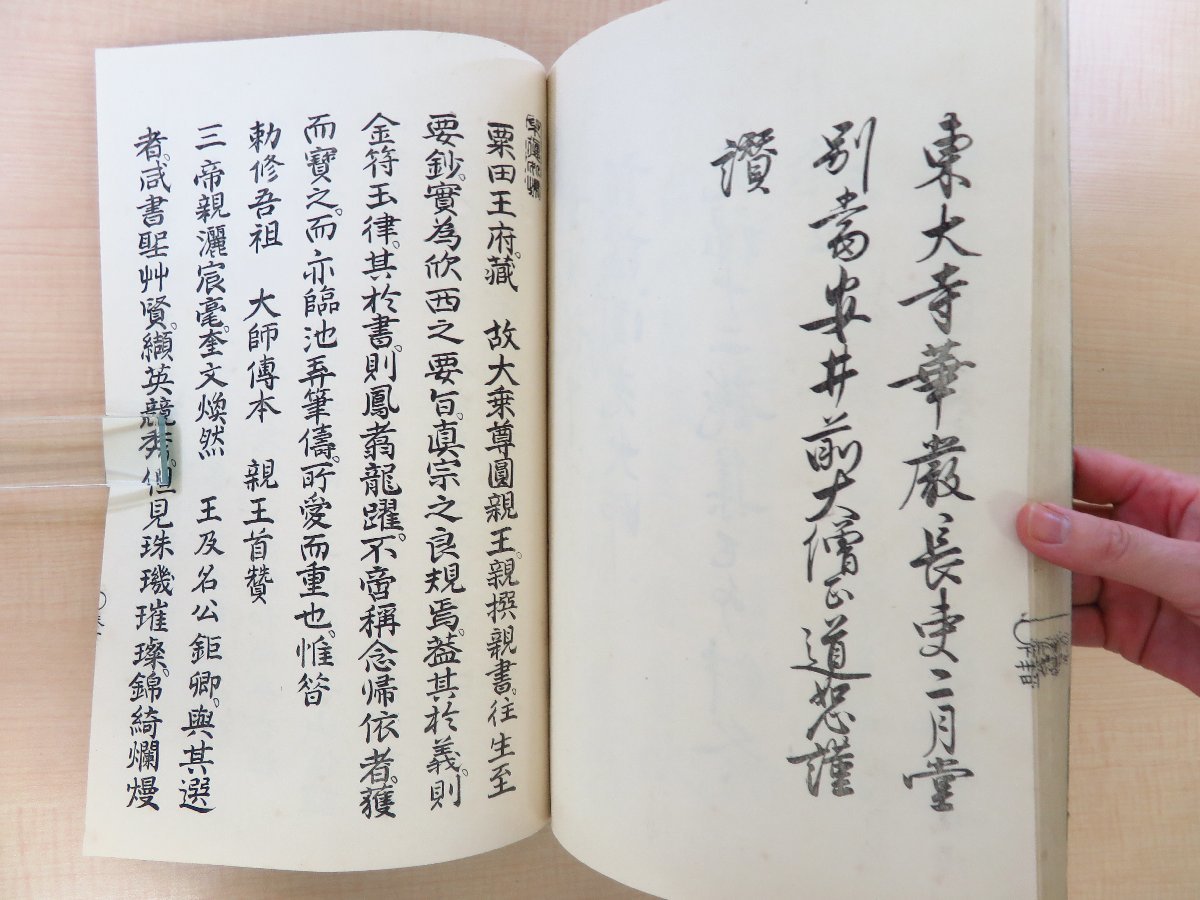 東大寺華嚴長吏二月堂
別當安井前大僧正道恕謹
讃
粟田王府藏　故大乗尊圓親王。親撰親書。往生至
要鈔。實為欣西之要旨。真宗之良規焉。蓋其於義。則
金符玉律。其於書。則鳳翥龍躍。不啻稱念帰依者。獲
而寶之。而亦臨池弄筆儔。所愛而重也。惟昝
勅修吾祖　大師傳本　親王首贊
三帝親灑宸毫。奎文煥然　王及名公鉅卿。與其選
者。咸書聖艸賢。纈英競秀。但見珠璣璀璨。錦綺爛熳